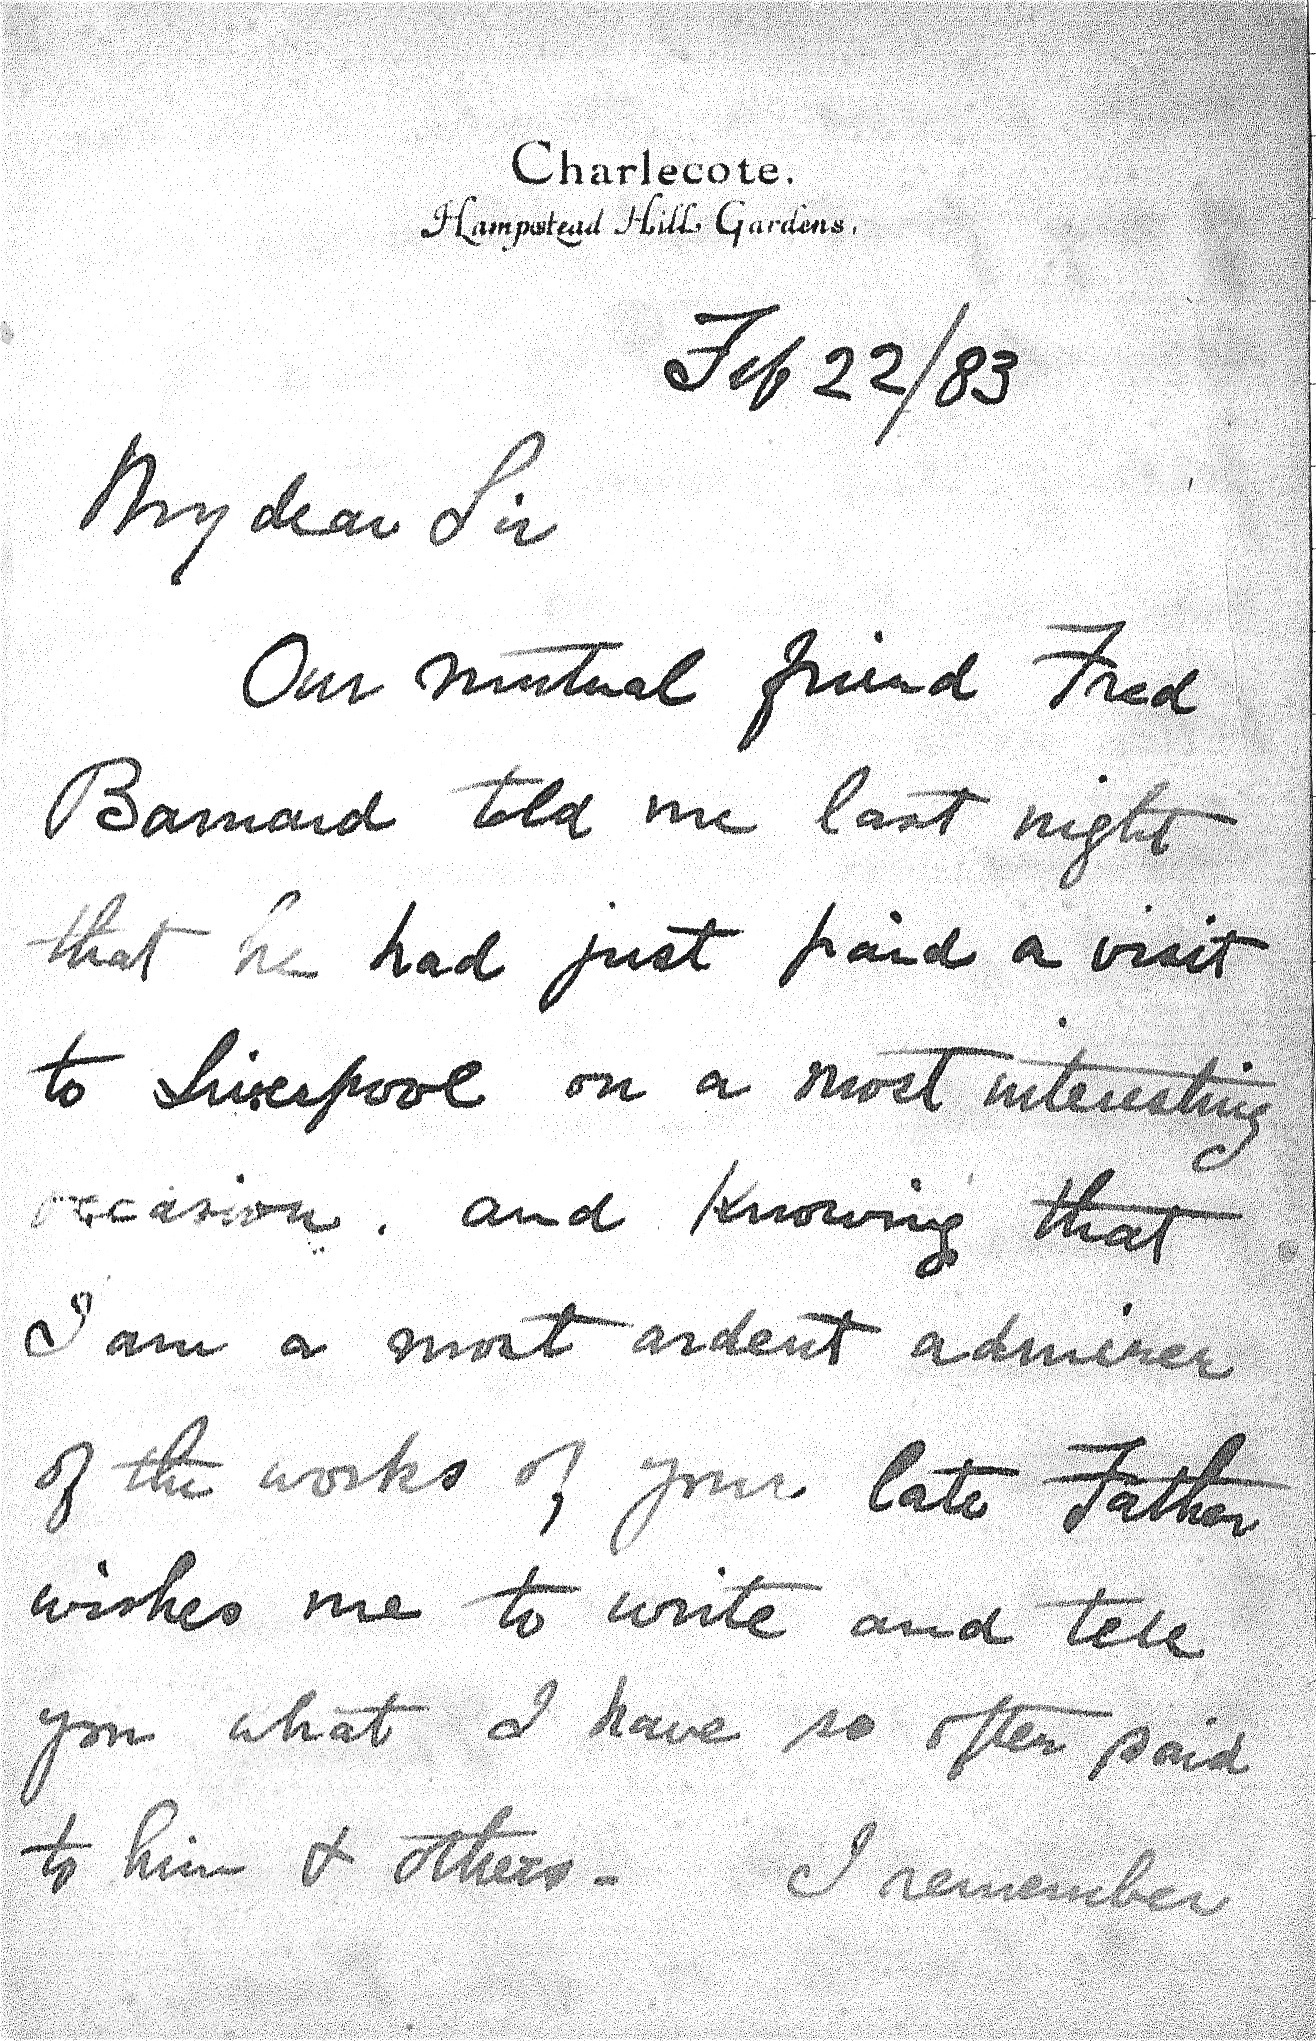 Charlecote.
Hampstead Hill Gardens.
Feb 22/83
My dear Sir
Our mutual friend Fred
Barnard told me last night
that he had just paid a visit
to Liverpool on a most interesting
occasion. and knowing that
I am a most ardent admirer
of the works of your late Father
wishes me to write and tell
you what I have so often said
to him & others - I remember